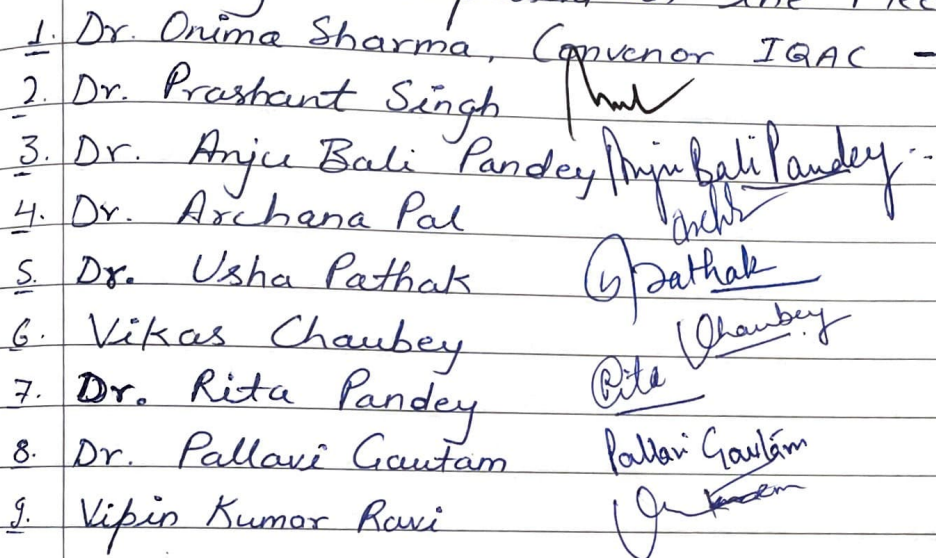 1. Dr. Onima Sharma, Convenor IQAC -
2. Dr. Prashant Singh
3. Dr. Anju Bali Pandey Anju Bali Pandey
4. Dr. Archana Pal
5. Dr. Usha Pathak Pathak
6. Vikas Chaubey Chaubey
7. Dr. Rita Pandey Rita
8. Dr. Pallavi Gautam Pallavi Gautam
9. Vipin Kumar Ravi